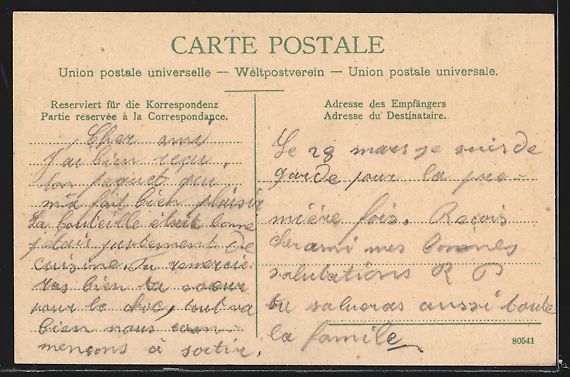 CARTE POSTALE
Union postale universelle — Weltpostverein — Union postale universale.
Reserviert für die Korrespondenz
Partie réservée à la Correspondance.
Adresse des Empfängers
Adresse du Destinataire.
Cher ami
J'ai bien reçu
ton paquet qui
m'a fait bien plaisir
La bouteille était bonne
j'etais justement de
cuisine. Tu remercie-
ras bien ta soeur
pour le choc, tout va
bien nous com-
mençons à sortir.
Le 28 mars je suis de
garde pour la pre-
mière fois. Reçois
cher ami mes bonnes
salutations R P
tu salueras aussi toute
la famile
80541